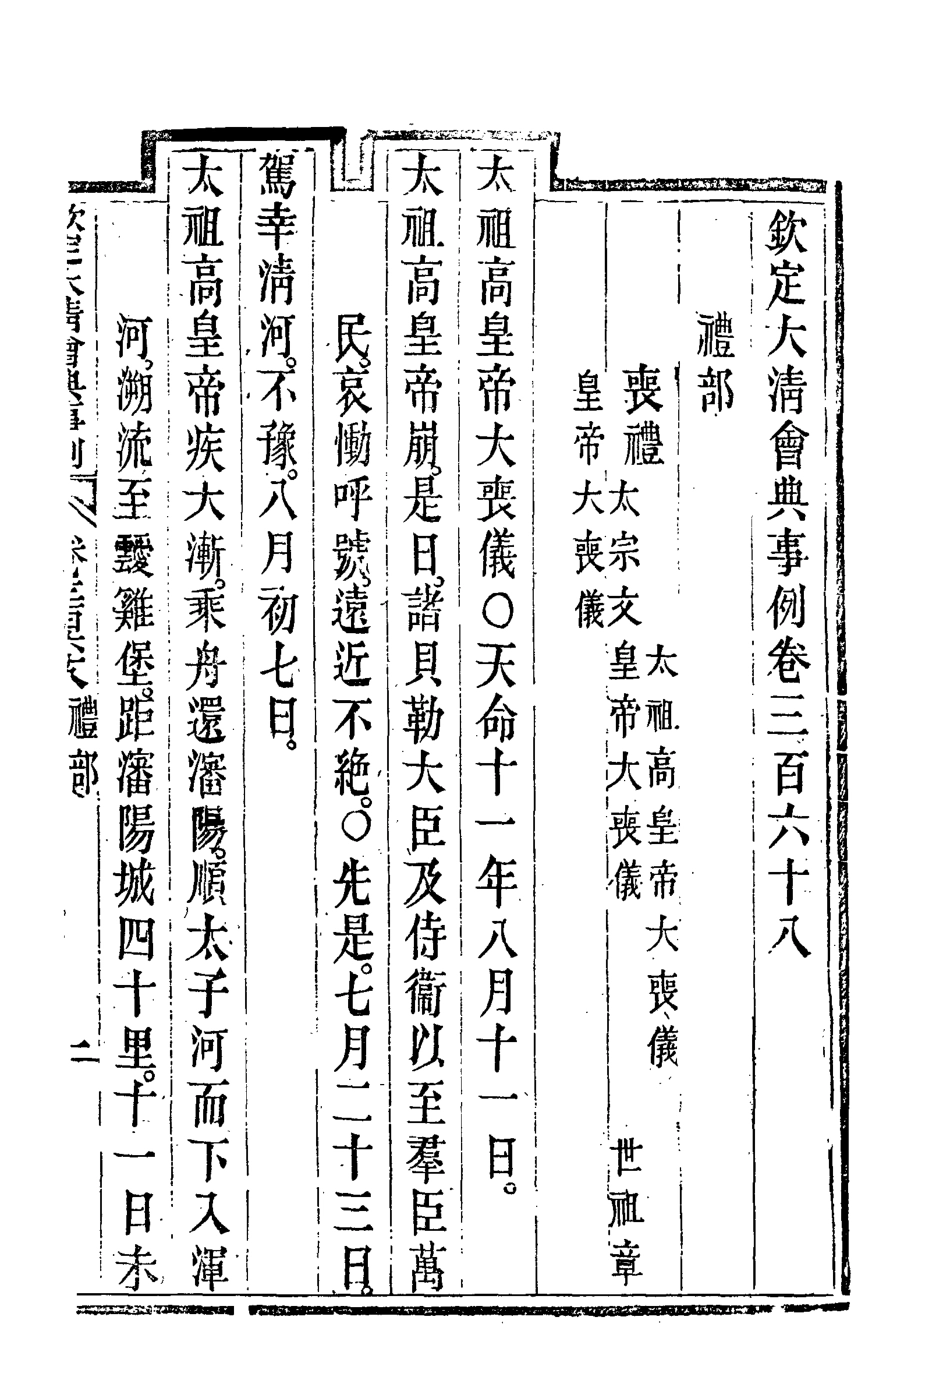 欽定大淸會典事例卷三百六十八
禮部
喪禮
太祖高皇帝大喪儀
太宗文皇帝大喪儀 世祖章
皇帝大喪儀
太祖高皇帝大喪儀○天命十一年八月十一日。
太祖高皇帝崩。是日。諸貝勒大臣及侍衞以至羣臣萬
民。哀慟呼號。遠近不絶。○先是。七月二十三日。
駕幸淸河。不豫。八月初七日。
太祖高皇帝疾大漸。乘舟還瀋陽。順太子河而下入渾
河。溯流至靉雞堡。距瀋陽城四十里。十一日未
欽定大淸會典事例 禮部